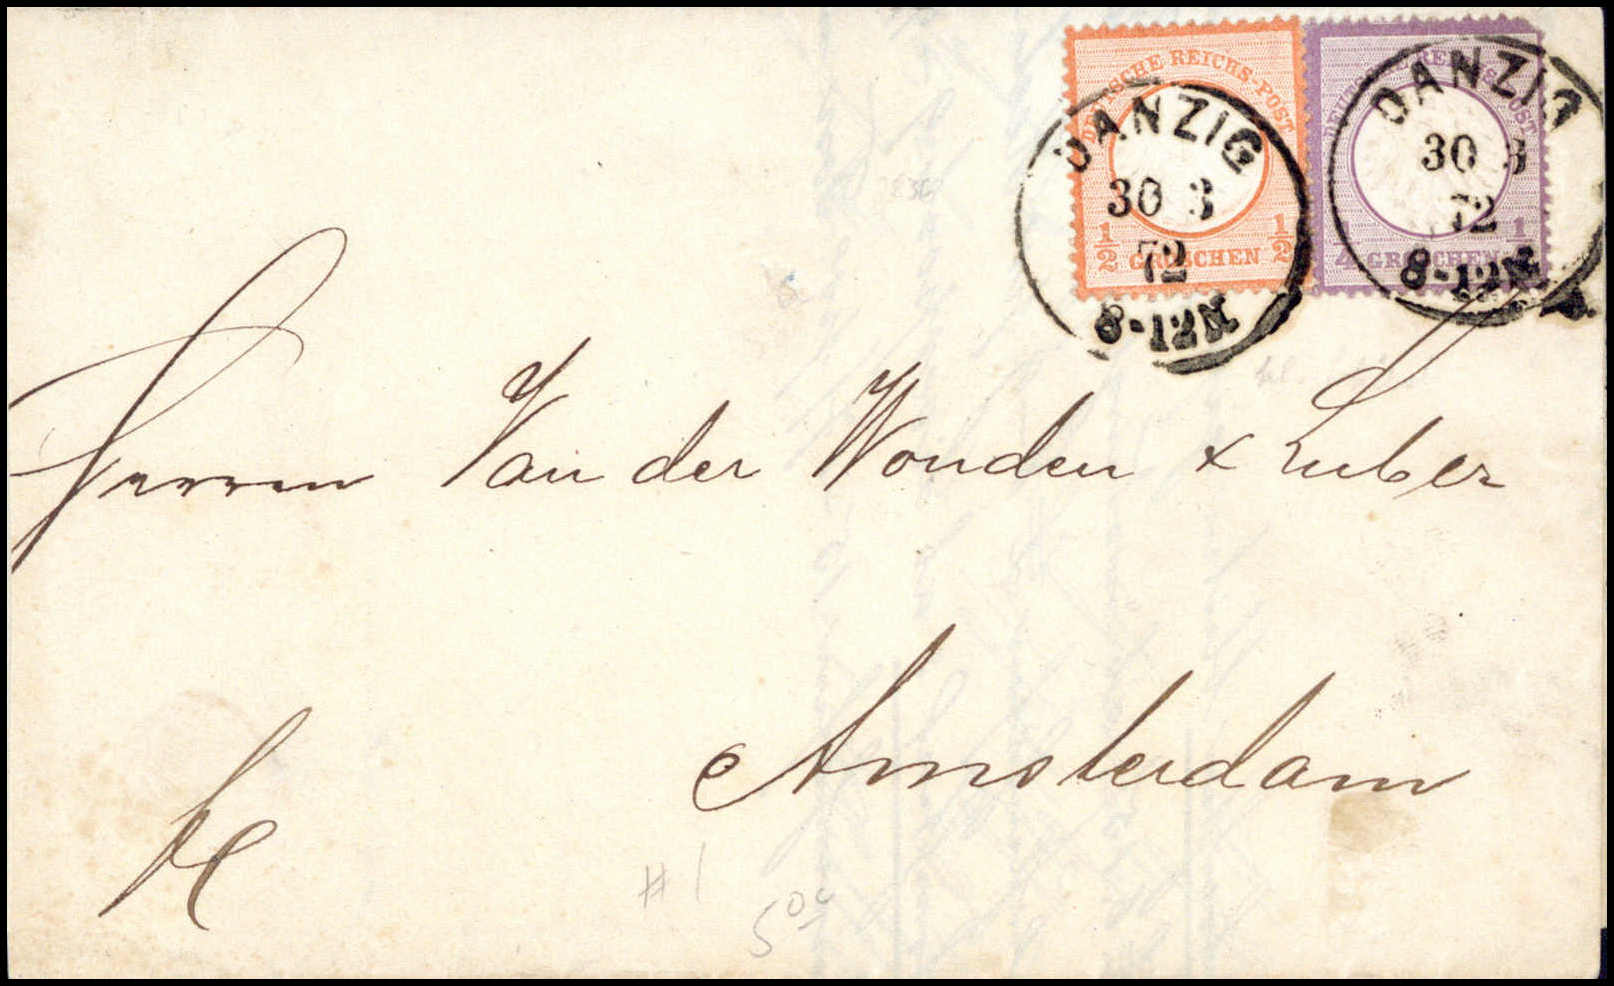 DEUTSCHE REICHS-POST
1/2 GROSCHEN 1/2
DEUTSCHE REICHS-POST
1/4 GROSCHEN
DANZIG
30 3
72
8-12N
DANZIG
30 3
72
8-12N
Herren Van der Wonden & Luber
Amsterdam
# 1
500